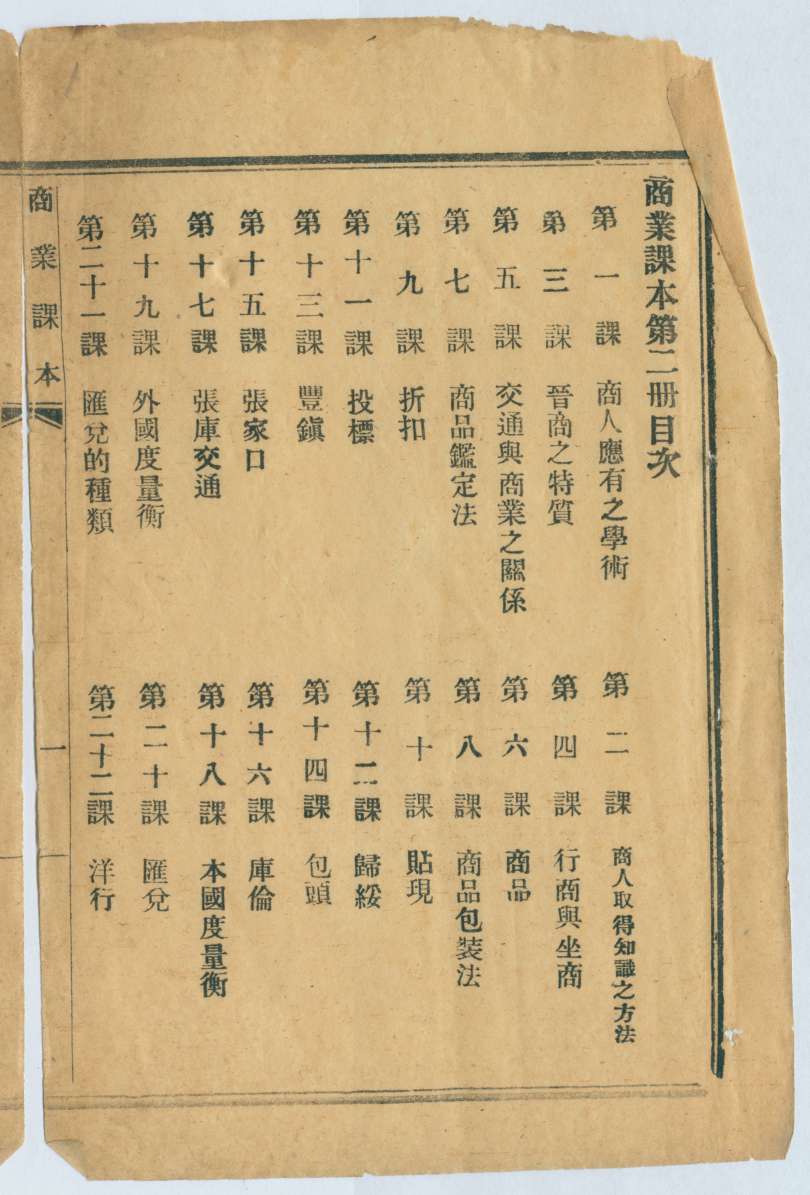 商業課本第二冊目次
第一課 商人應有之學術
第二課 商人取得知識之方法
第三課 晉商之特質
第四課 行商與坐商
第五課 交通與商業之關係
第六課 商品
第七課 商品鑑定法
第八課 商品包裝法
第九課 折扣
第十課 貼現
第十一課 投標
第十二課 歸綏
第十三課 豐鎮
第十四課 包頭
第十五課 張家口
第十六課 庫倫
第十七課 張庫交通
第十八課 本國度量衡
第十九課 外國度量衡
第二十課 匯兌
第二十一課 匯兌的種類
第二十二課 洋行
商業課本
一